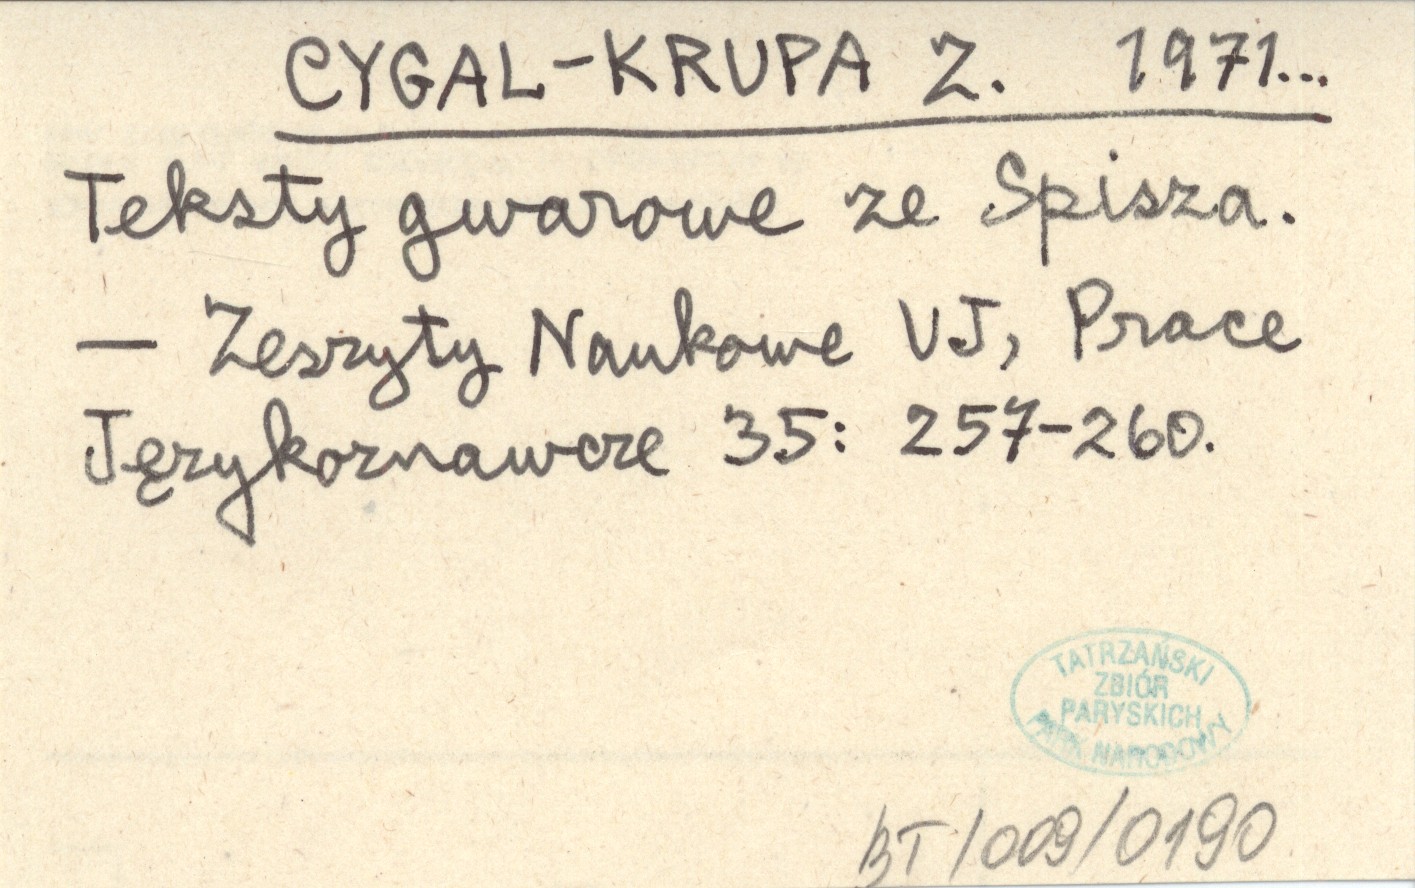 CYGAL-KRUPA Z. 1971...
Teksty gwarowe ze Spisza.
— Zeszyty Naukowe UJ, Prace
Językoznawcze 35: 257-260.
TATRZAŃSKI
ZBIÓR
PARYSKICH
PARK NARODOWY
BT/009/0190